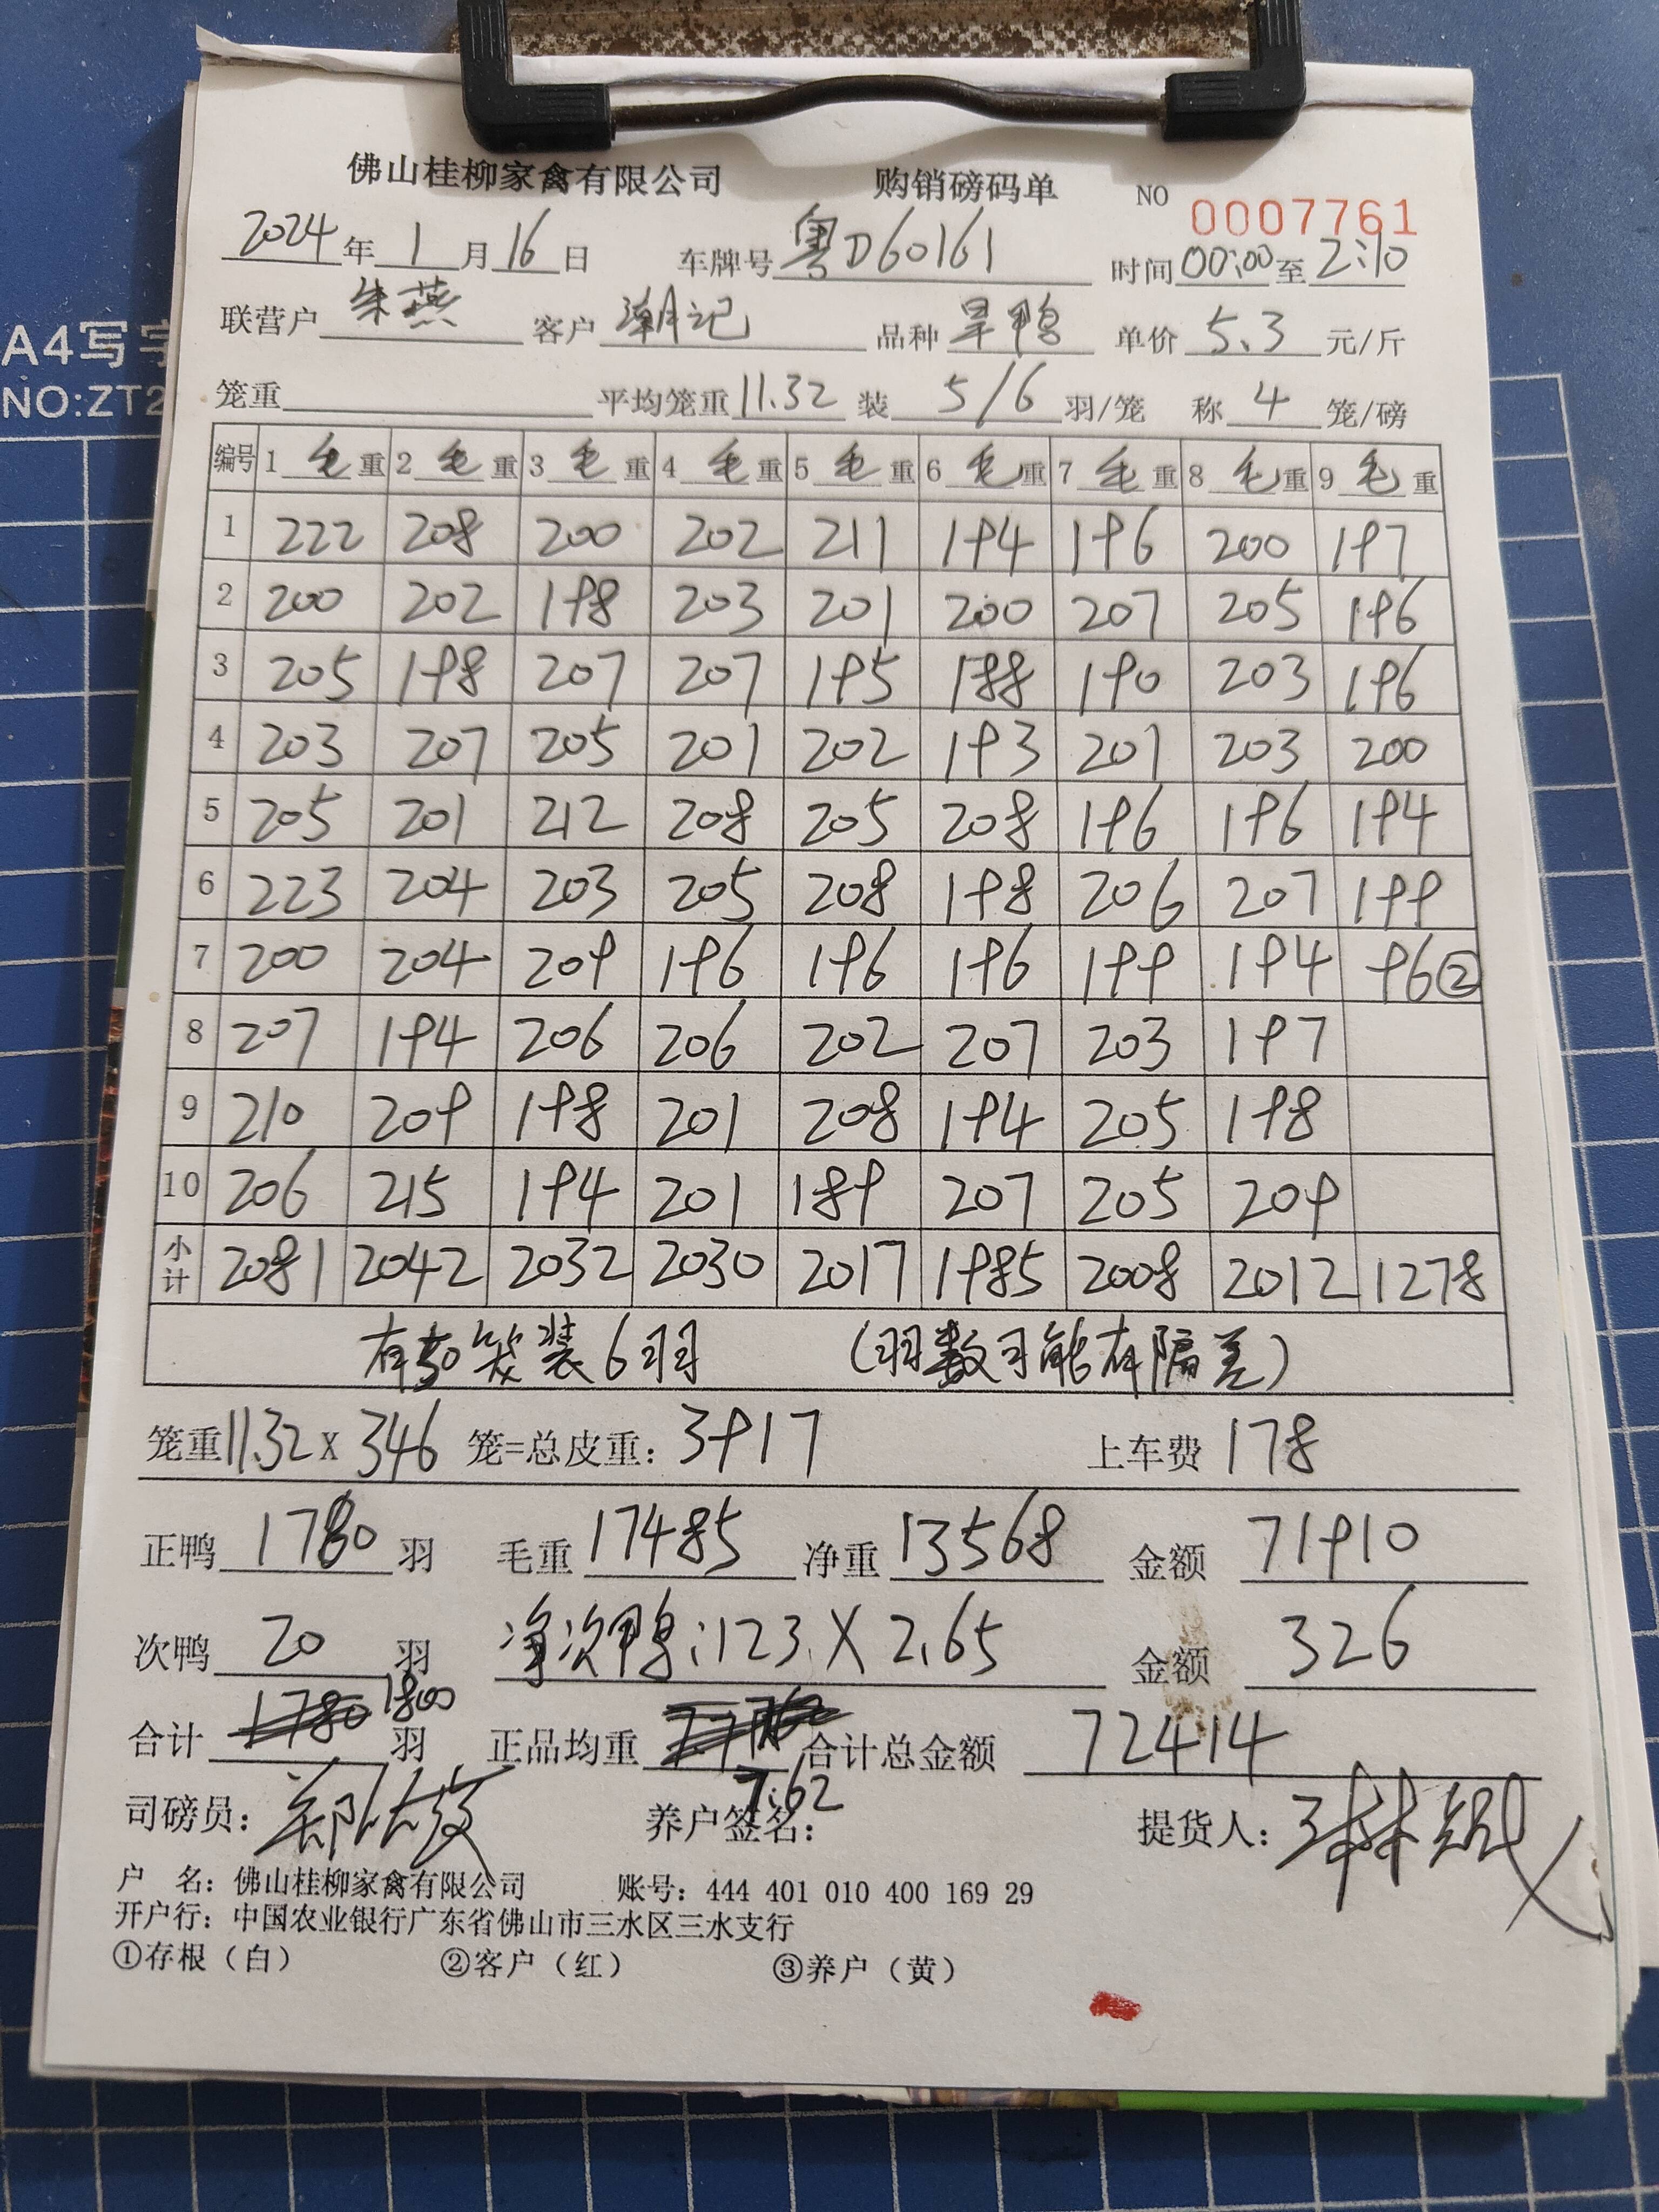 佛山桂柳家禽有限公司 购销磅码单 NO 0007761
2024年1月16日 车牌号 粤D60161 时间 00:00 至 2:10
联营户 朱燕 客户 潮记 品种 旱鸭 单价 5.3 元/斤
笼重 平均笼重 11.32 装 5/6 羽/笼 称 4 笼/磅
编号 1 毛重 2 毛重 3 毛重 4 毛重 5 毛重 6 毛重 7 毛重 8 毛重 9 毛重
1 222 208 200 202 211 194 196 200 197
2 200 202 198 203 201 200 207 205 196
3 205 198 207 207 195 188 190 203 196
4 203 207 205 201 202 193 201 203 200
5 205 201 212 208 205 208 196 196 194
6 223 204 203 205 208 198 206 207 199
7 200 204 209 196 196 196 199 194 96②
8 207 194 206 206 202 207 203 197
9 210 209 198 201 208 194 205 198
10 206 215 194 201 189 207 205 209
小计 2081 2042 2032 2030 2017 1985 2008 2012 1278
有50笼装6羽 (羽数可能有隔差)
笼重 11.32 X 346 笼=总皮重: 3917 上车费 178
正鸭 1780 羽 毛重 17485 净重 13568 金额 71910
次鸭 20 羽 净次鸭:123 X 2.65 金额 326
合计 1780 1800 羽 正品均重 7.62 合计总金额 72414
司磅员: 养户签名: 提货人:
户 名: 佛山桂柳家禽有限公司 账号: 444 401 010 400 169 29
开户行: 中国农业银行广东省佛山市三水区三水支行
①存根（白） ②客户（红） ③养户（黄）
A4写字
NO:ZT2